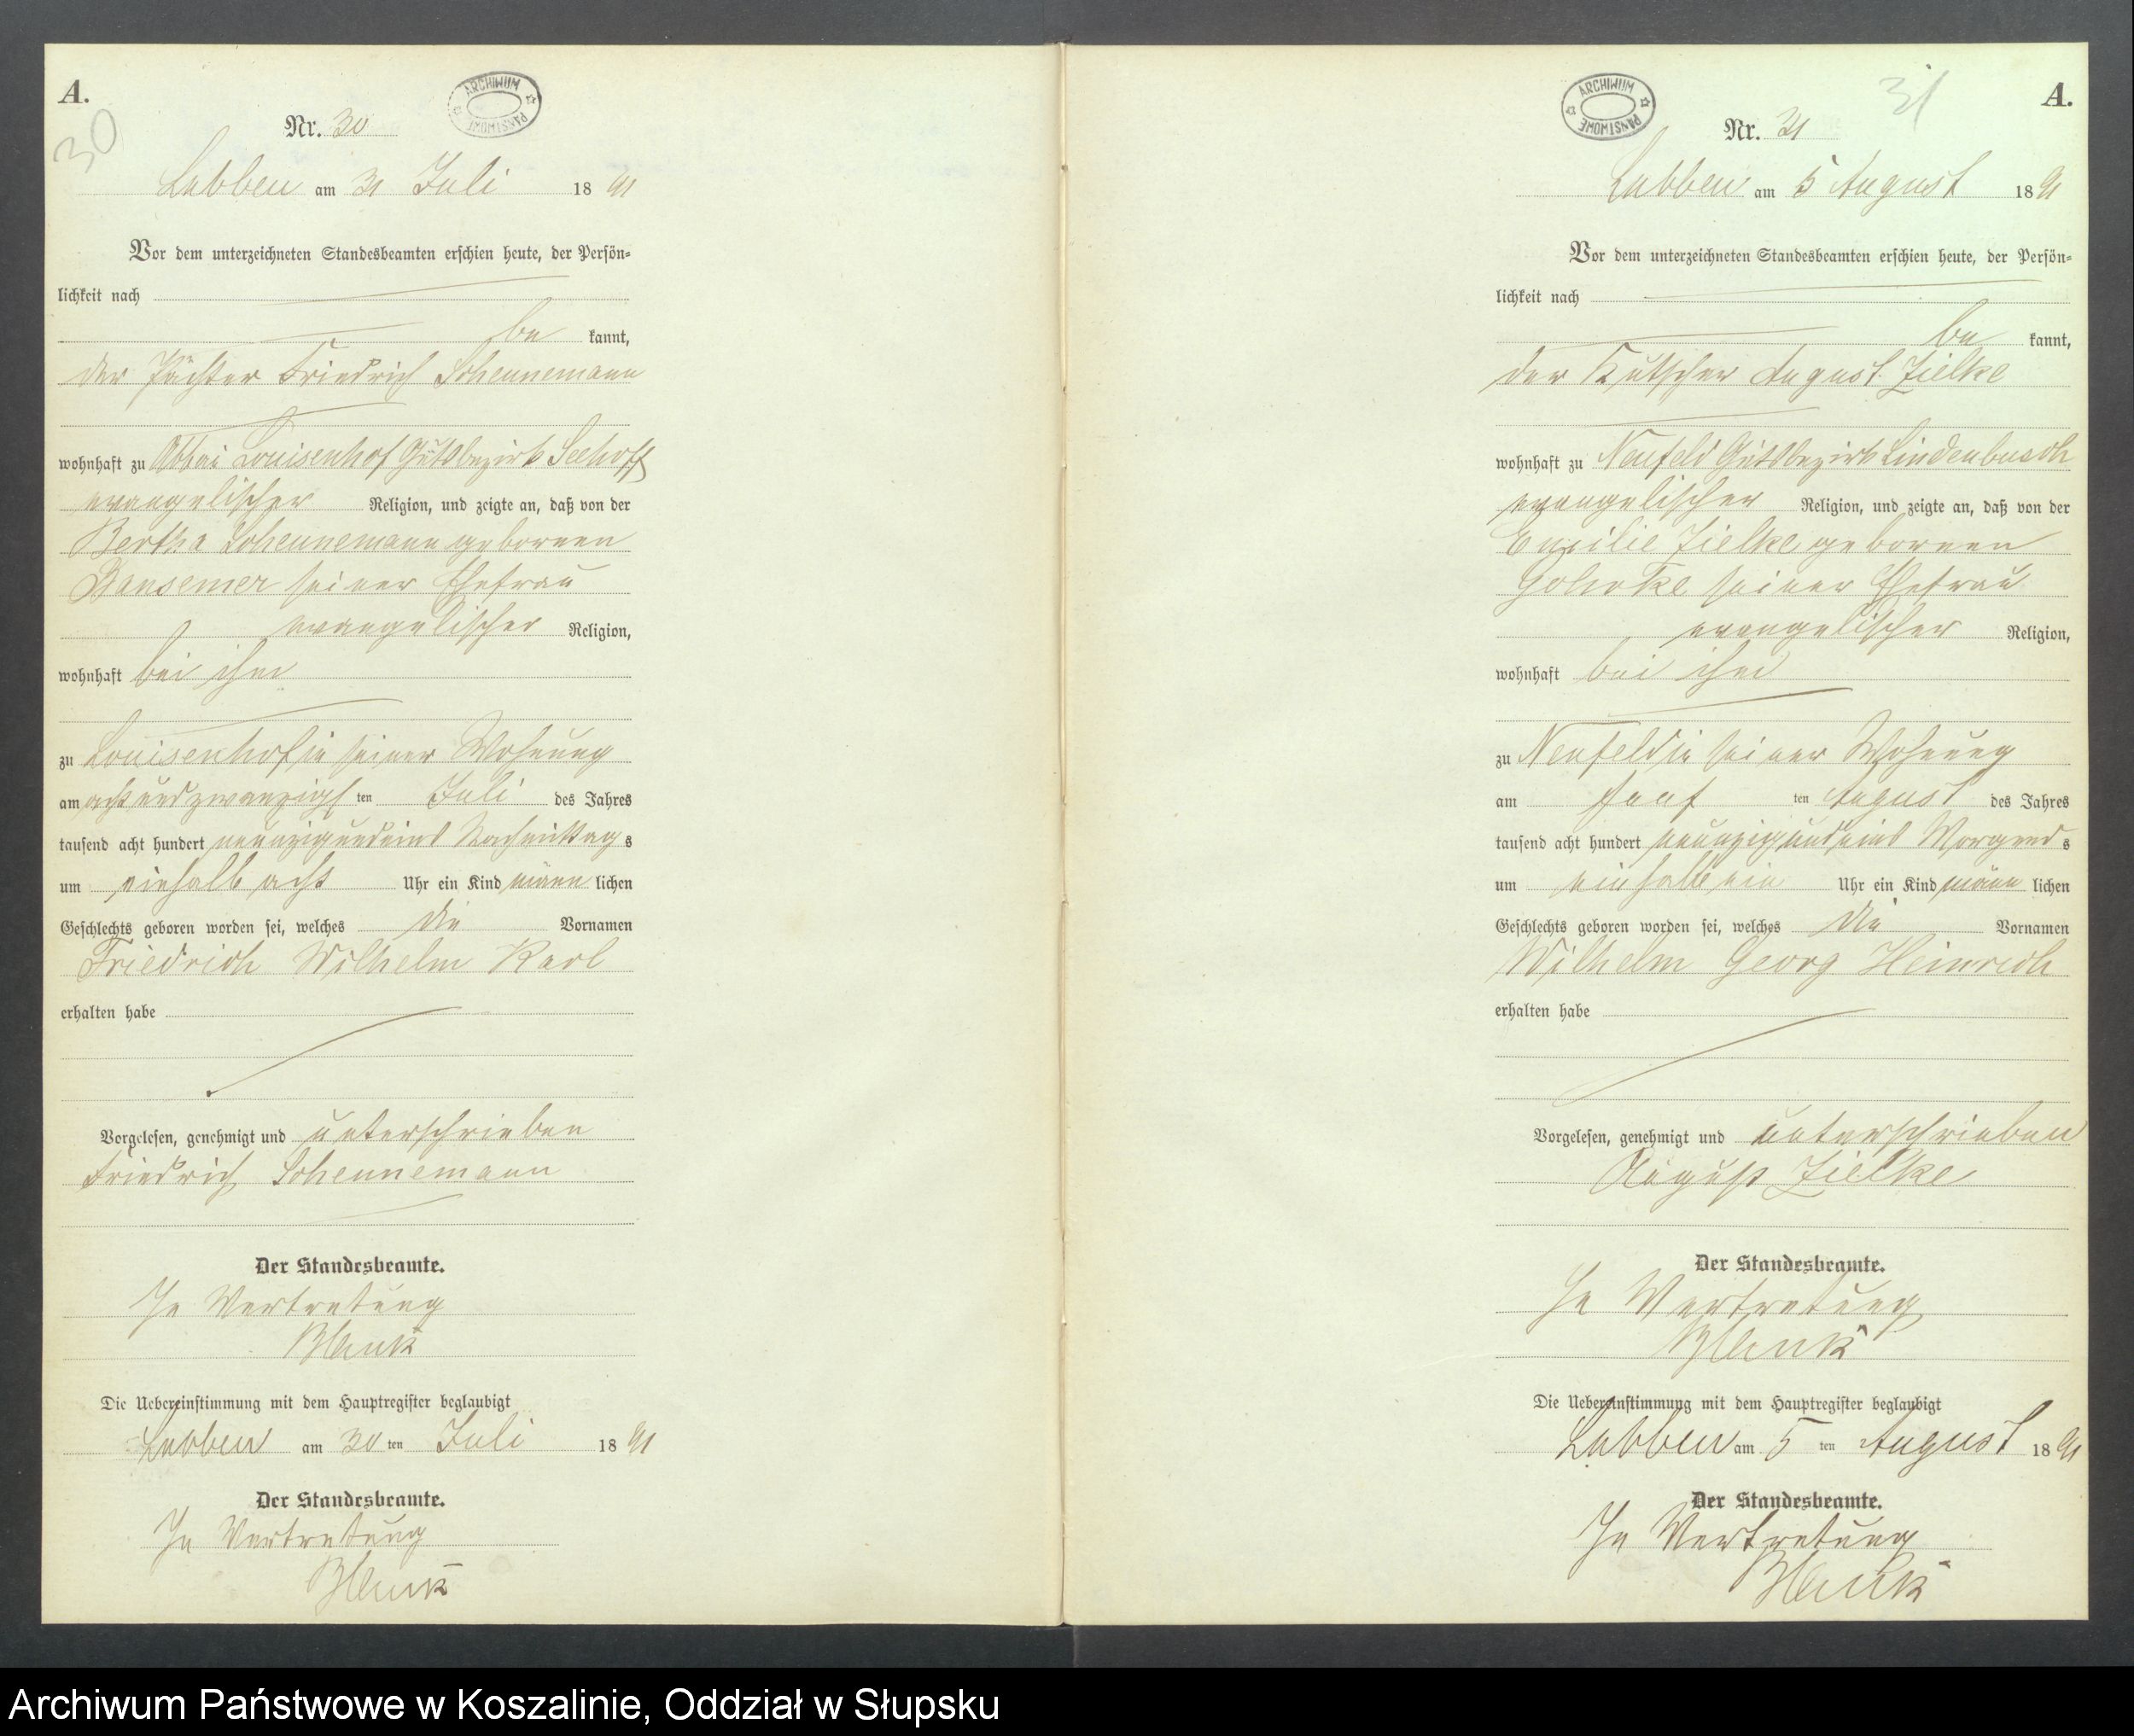 A.
30
Nr. 30
ARCHIWUM PAŃSTWOWE
Labben am 31 Juli 1891
Vor dem unterzeichneten Standesbeamten erschien heute, der Persön-
lichkeit nach
be kannt,
der Pächter Friedrich Schennemann
wohnhaft zu Abbau Louisenhof Gutsbezirk Seehoff
evangelischer Religion, und zeigte an, daß von der
Bertha Schennemann geborenen
Bansemer seiner Ehefrau
evangelischer Religion,
wohnhaft bei ihm
zu Louisenhof in seiner Wohnung
am acht und zwanzigsten Juli des Jahres
tausend acht hundert neunzig und eins Nachmittags
um einhalb acht Uhr ein Kind männlichen
Geschlechts geboren worden sei, welches die Vornamen
Friedrich Wilhelm Karl
erhalten habe
Vorgelesen, genehmigt und unterschrieben
Friedrich Schennemann
Der Standesbeamte.
In Vertretung
Blank
Die Uebereinstimmung mit dem Hauptregister beglaubigt
Labben am 30 ten Juli 1891
Der Standesbeamte.
In Vertretung
Blank
A.
31
Nr. 31
ARCHIWUM PAŃSTWOWE
Labben am 5 August 1891
Vor dem unterzeichneten Standesbeamten erschien heute, der Persön-
lichkeit nach
be kannt,
der Kutscher August Zielke
wohnhaft zu Neufeld Gutsbezirk Lindenbusch
evangelischer Religion, und zeigte an, daß von der
Emilie Zielke geborenen
seiner Ehefrau
evangelischer Religion,
wohnhaft bei ihm
zu Neufeld in seiner Wohnung
am ten August des Jahres
tausend acht hundert neunzig und eins Morgens
um einhalb ein Uhr ein Kind männlichen
Geschlechts geboren worden sei, welches die Vornamen
Wilhelm Georg Heinrich
erhalten habe
Vorgelesen, genehmigt und unterschrieben
August Zielke
Der Standesbeamte.
In Vertretung
Blank
Die Uebereinstimmung mit dem Hauptregister beglaubigt
Labben am 5 ten August 1891
Der Standesbeamte.
In Vertretung
Blank
Archiwum Państwowe w Koszalinie, Oddział w Słupsku